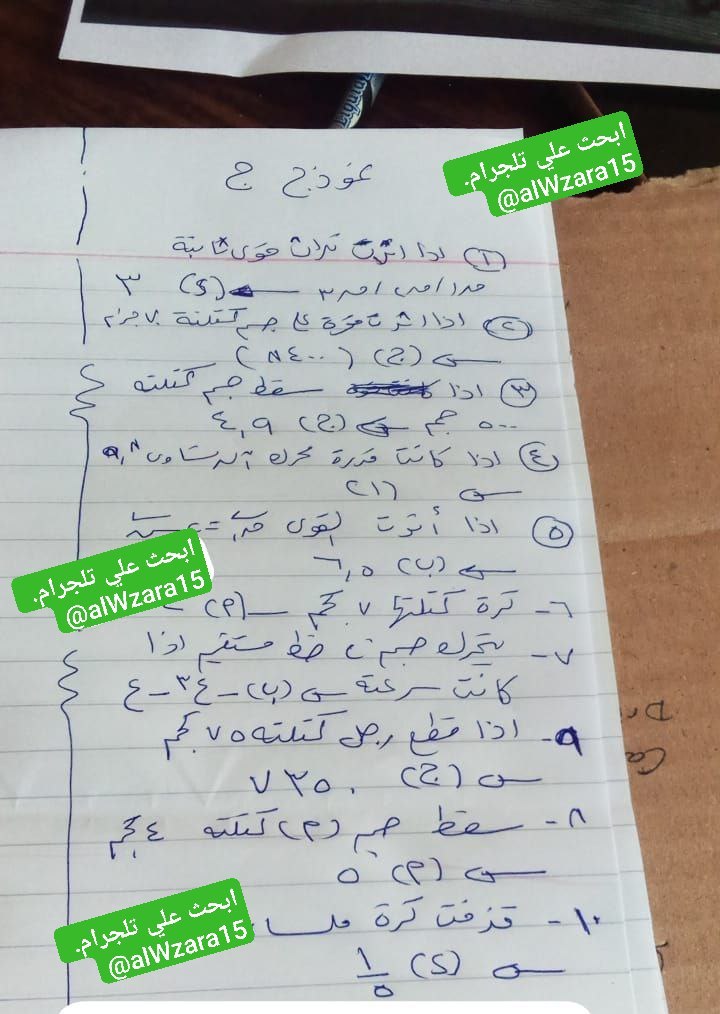 نموذج ج
ابحث علي تلجرام.
@alWzara15
① اذا اثرت ثلاث قوى ثابتة
← (د) ٣
② اذا اثرت قوة على جسم كتلته ٧ جرام
← (ج) (٤٠٠ N)
③ اذا سقط جسم كتلته
٥٠٠ جم ← (ج) ٤,٩
④ اذا كانت قدرة محرك آلة تساوى ٩,٨
← (١)
⑤ اذا أثرت القوى
← (ب) ٦,٥
ابحث علي تلجرام.
@alWzara15
٦- كرة كتلتها ٧ كجم ← (م)
٧- يتحرك جسم فى خط مستقيم اذا
كانت سرعته ← (ب)
٩- اذا قطع رجل كتلته ٧٥ كجم
← (ج) ٧٣٥٠
٨- سقط جسم (م) كتلته ٤ كجم
← (م) ٥
ابحث علي تلجرام.
@alWzara15
١٠- قذفت كرة ملسا
← (د) ١/٥